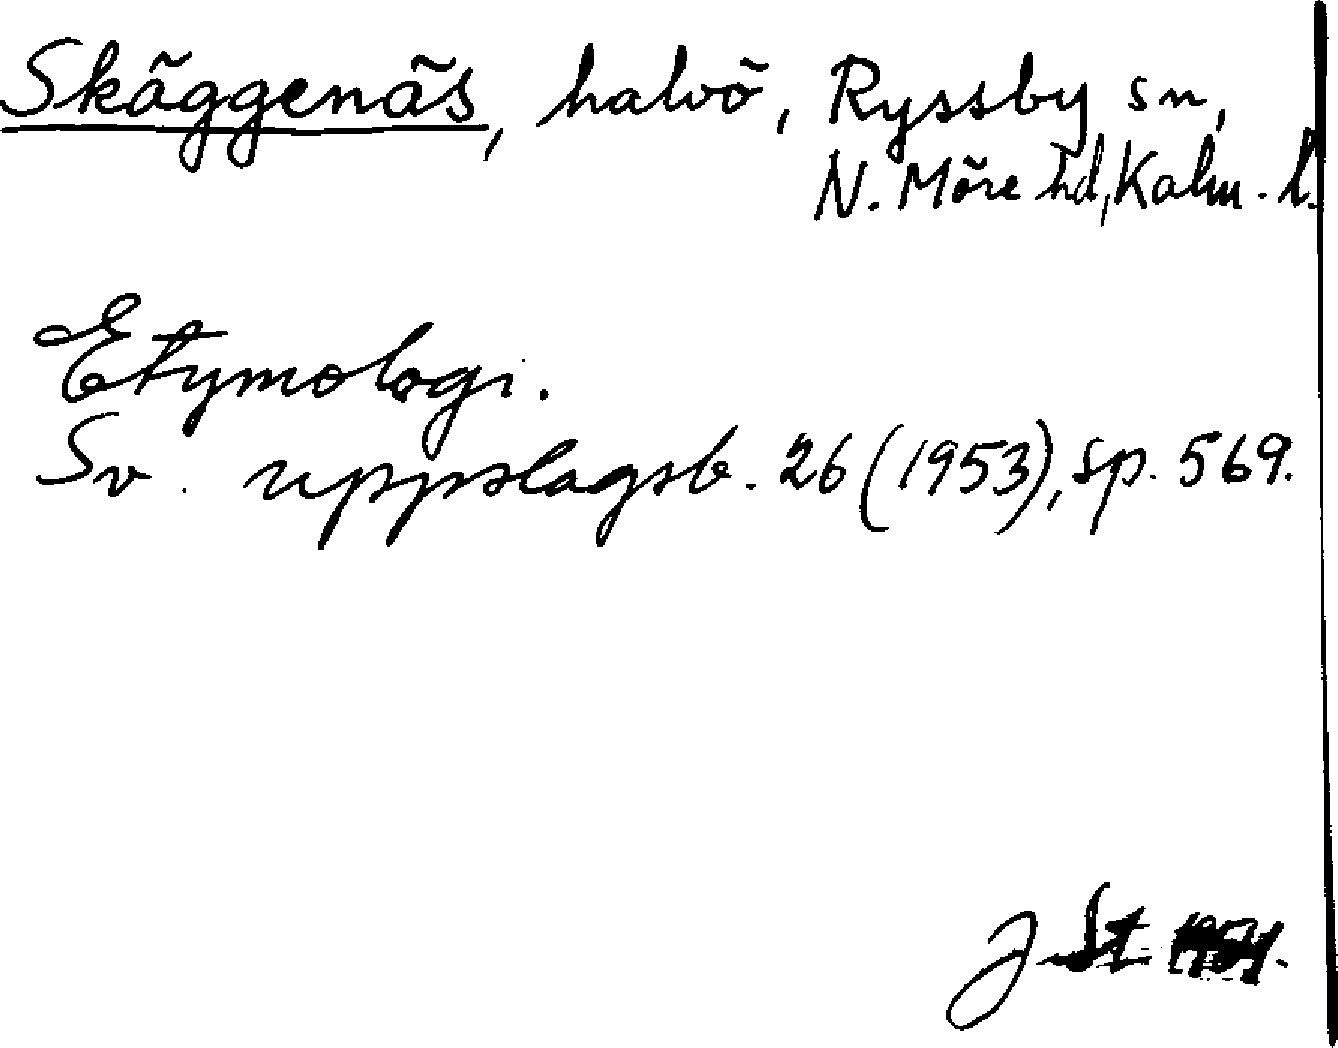 Skäggenäs, halvö, Ryssby sn,
N. Möre hd, Kalm. l.
Etymologi.
Sv. uppslagsb. 26 (1953), sp. 569.
J. St. 1954.